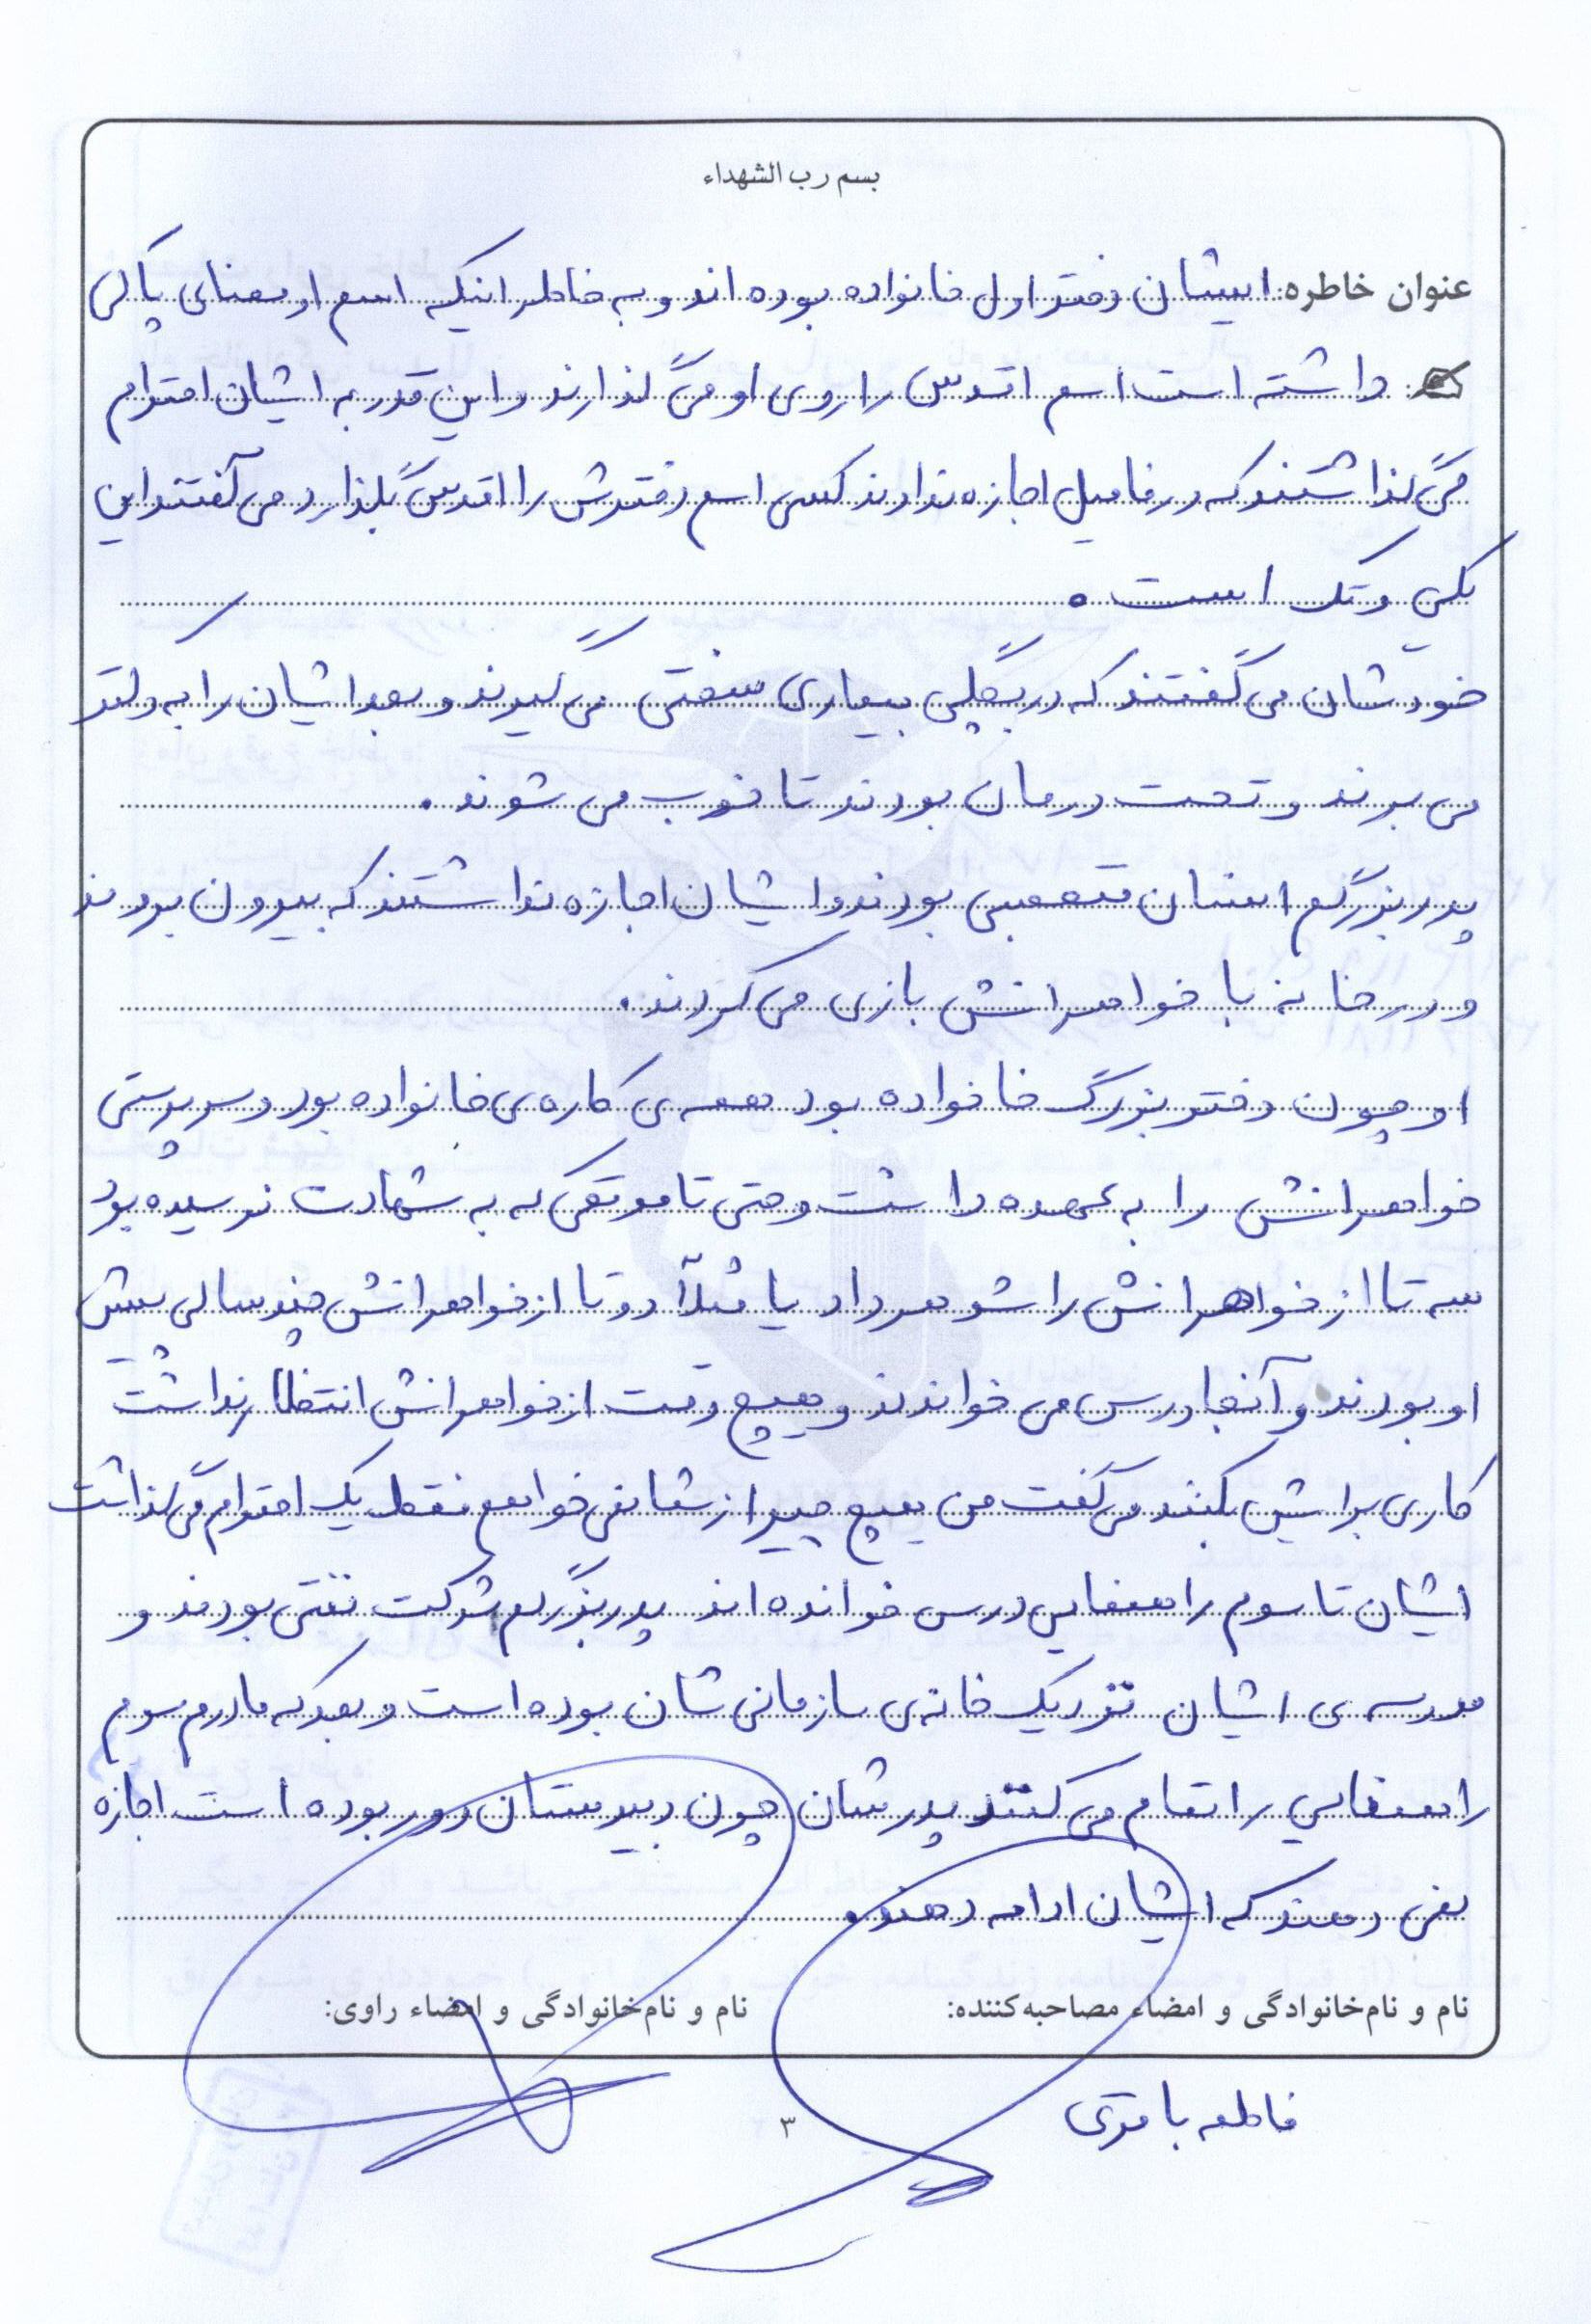 بسم رب الشهداء
عنوان خاطره: ایشان دختر اول خانواده بوده اند و به خاطر اینکه اسم او معنای پاکی
داشته است اسم اقدس را روی او می گذارند و این قدر به ایشان احترام
می گذاشتند که در فامیل اجازه ندادند کسی اسم دخترش را اقدس بگذارد می گفتند این
یکی و تک است.
خودشان می گفتند که در بچگی بیماری سختی می گیرند و بعد ایشان را به دکتر
می برند و تحت درمان بودند تا خوب می شوند.
پدربزرگم انسان متعصبی بودند و ایشان اجازه نداشتند که بیرون بروند
و در خانه با خواهرانش بازی می کردند.
او چون دختر بزرگ خانواده بود همه ی کاره ی خانواده بود و سرپرستی
خواهرانش را به عهده داشت و حتی تا موقعی که به شهادت نرسیده بود
سه تا از خواهرانش را شوهر داد یا مثلاً دو تا از خواهرانش چند سالی پیش
او بودند و آنجا درس می خواندند و هیچ وقت از خواهرانش انتظار نداشت
کاری برایش بکنند می گفت من هیچ چیز از شما نمی خواهم فقط یک احترام می گذاشت
ایشان تا سوم راهنمایی درس خوانده اند پدربزرگم شرکت نفتی بودند و
مدرسه ی ایشان نزدیک خانه ی سازمانی شان بوده است و بعد که مادرم سوم
راهنمایی را تمام می کنند پدرشان چون دبیرستان دور بوده است اجازه
نمی دهند که ایشان ادامه دهند.
نام و نام‌خانوادگی و امضاء مصاحبه‌کننده: نام و نام‌خانوادگی و امضاء راوی:
فاطمه باقری
۳